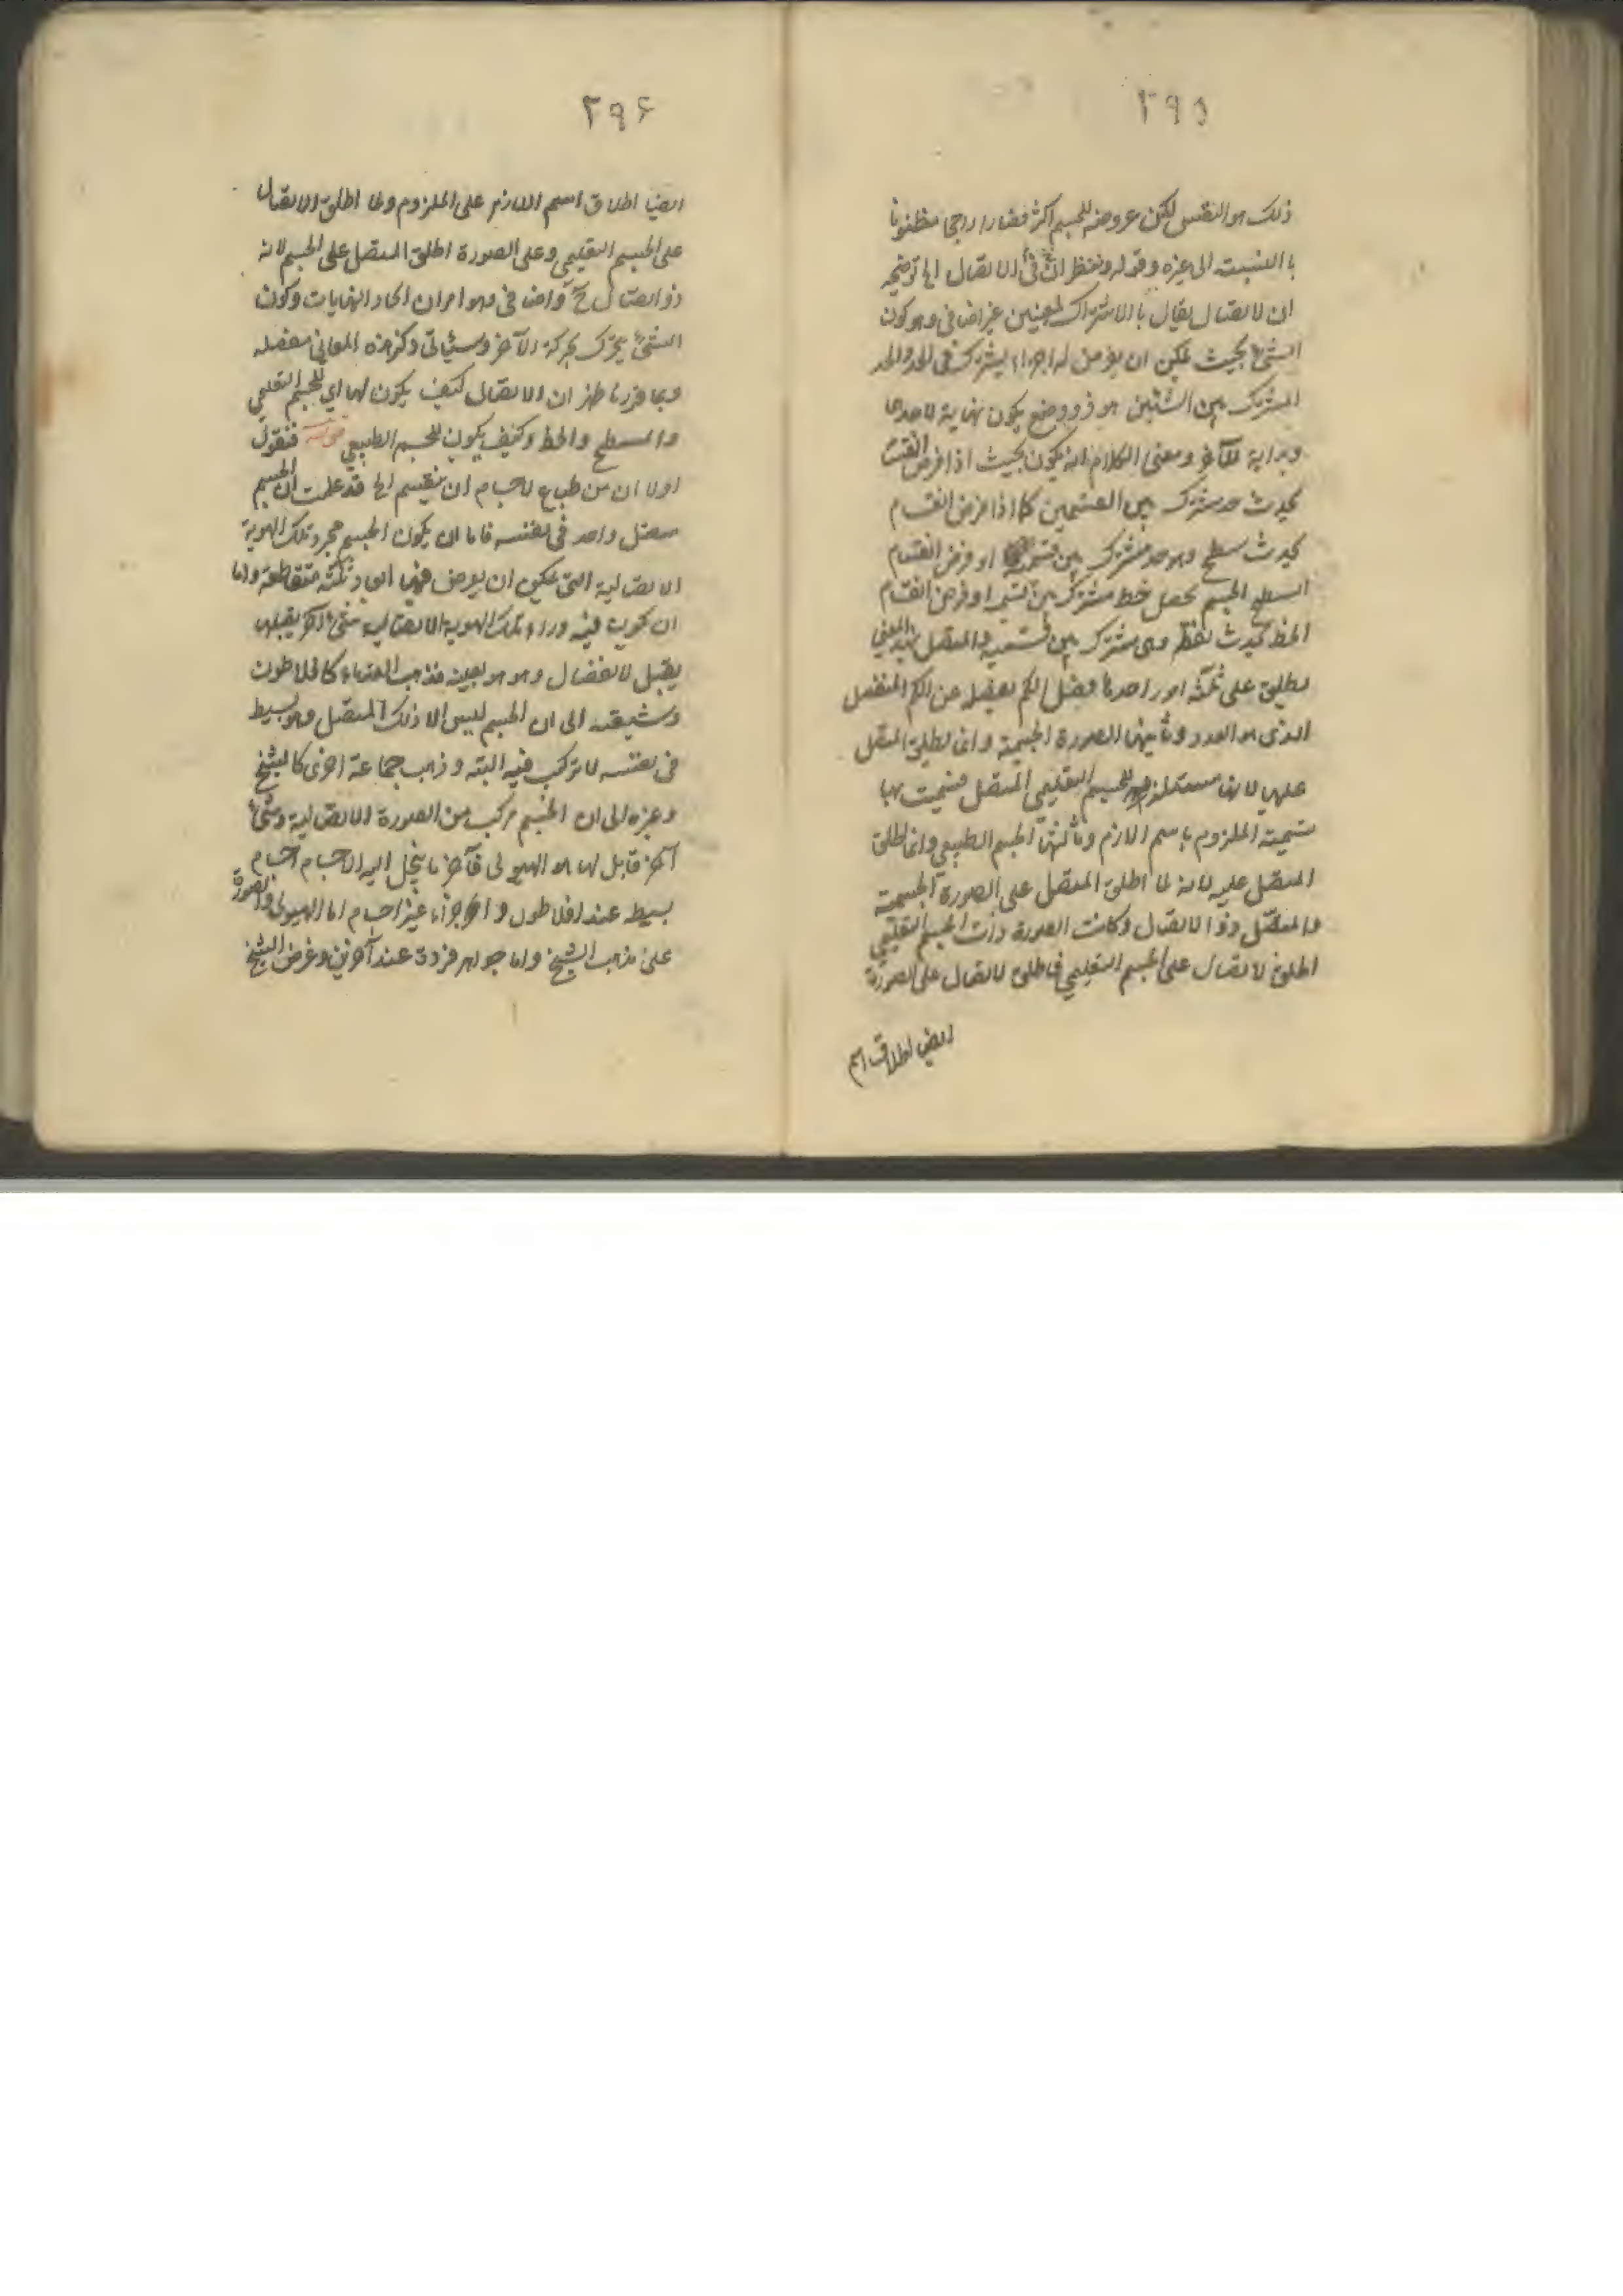 ٢٩٥
ذلك هو النفس لكن عروضه للجسم اكثر فصار ارجحا مظنونا
بالنسبت الى غيره وقوله وننظر ان فى الاتصال الخ توضيحه
ان الاتصال يقال بالاشتراك لمعنيين غير اضافى وهو كون
الشئ بحيث يمكن ان يفرض له اجزاء يشترك فى الحد والحد
المشترك بين الشيئين هو ذو وضع يكون نهاية لاحدهما
وبداية للآخر ومعنى الكلام انه يكون بحيث اذا فرض انقسامه
يحدث حد مشترك بين القسمين كما اذا فرض انقسام
يحدث سطح وهو حد مشترك بين قسميه او فرض انقسام
السطح الجسم يحصل خط مشترك بين قسميه او فرض انقسام
الخط يحدث نقطة وهى مشترك بين قسميه والمتصل بهذا المعنى
يطلق على ثلثة امور احدها فصل الكم يفصله عن الكم المنفصل
الذى هو العدد وثانيها الصورة الجسمية وانما يطلق المتصل
عليها لانها مستلزمة للجسم التعليمى المتصل فسميت بها
تسمية الملزوم باسم اللازم وثالثها الجسم الطبيعى وانما اطلق
المتصل عليه لانه لما اطلق المتصل على الصورة الجسمية
والمتصل ذو الاتصال وكانت الصورة ذات الجسم التعليمى
اطلق الاتصال على الجسم التعليمى فاطلق الاتصال على الصورة
ايضا اطلاق اسم
٢٩۶
ايضا اطلاق اسم اللازم على الملزوم ولما اطلق الاتصال
على الجسم التعليمى وعلى الصورة اطلق المتصل على الجسم لانه
ذو اتصال ح واضافى وهو امران اتحاد النهايات وكون
الشئ يتحرك بحركة الآخر وسيأتى ذكر هذه المعانى مفصله
وبما قررنا ظهر ان الاتصال كيف يكون لها اى للجسم التعليمى
والسطح والخط وكيف يكون للجسم الطبيعى قوله فنقول
اولا ان من طباع الاجسام ان ينقسم الخ قد علمت ان الجسم
متصل واحد فى نفسه فاما ان يكون الجسم مجرد تلك الهوية
الاتصالية التى يمكن ان يعرض فيها ابعاد ثلثة متقاطعة واما
ان يكون فيه وراء تلك الهوية الاتصالية شئ آخر يقبلها
يقبل الانفصال وهو هو بعينه فذهب القدماء كافلاطون
وشيعته الى ان الجسم ليس الا ذلك المتصل وهو بسيط
فى نفسه لا تركب فيه البته وذهب جماعة اخرى كالشيخ
وغيره الى ان الجسم مركب من الصورة الاتصالية وشئ
آخر قابل لها هو الهيولى فآخر ما ينحل اليه الاجسام اجسام
بسيطه عند افلاطون واجزا غير اجسام اما الهيولى والصورة
على مذهب الشيخ واما جواهر فردة عند آخرين وغرض الشيخ